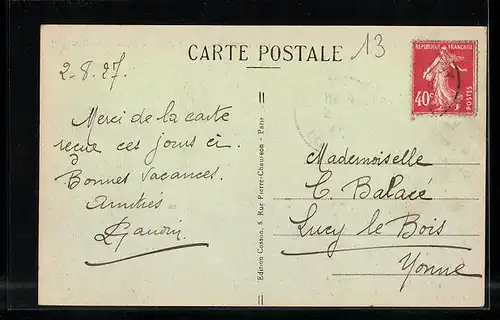 CARTE POSTALE
13
2-8.27.
RÉPUBLIQUE FRANÇAISE
40c
POSTES
Merci de la carte
reçue ces jours ci.
à
Bonnes vacances.
Amitiés
Mademoiselle
C. Balacé
Lucy le Bois
Yonne
Edition Cosson, 8, Rue Pierre-Chausson - Paris